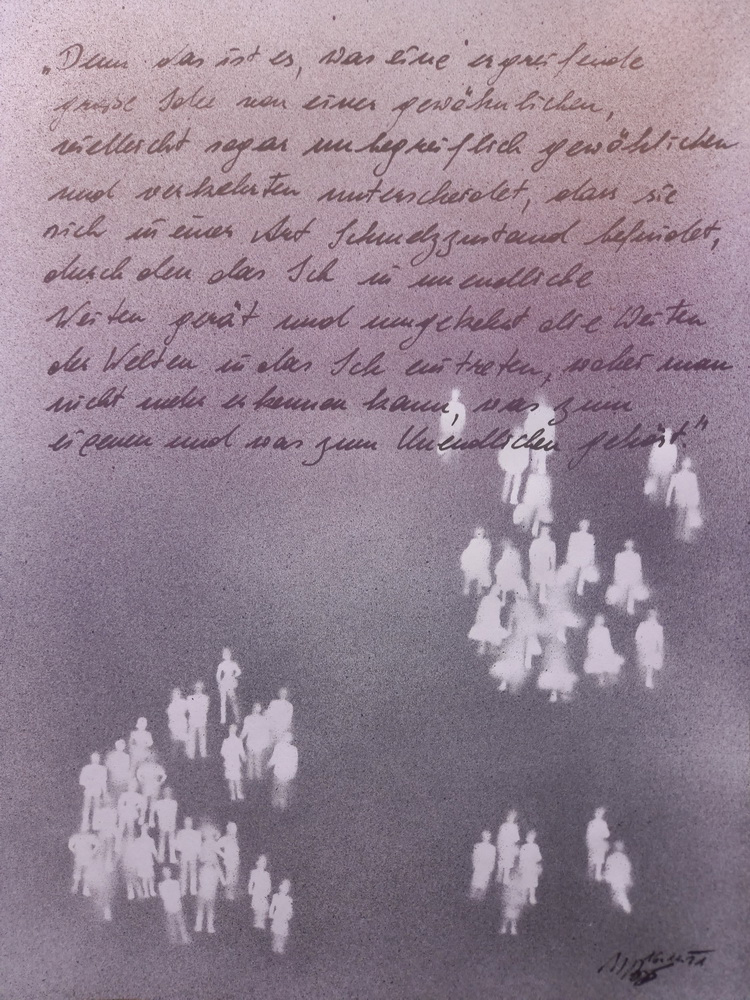 „Denn das ist es, was eine ergreifende
große Idee von einer gewöhnlichen,
vielleicht sogar unbegreiflich gewöhnlichen
und verkehrten unterscheidet, dass sie
sich in einer Art Schmelzzustand befindet,
durch den das Ich in unendliche
Weiten gerät und umgekehrt die Weiten
der Welten in das Ich eintreten, wobei man
nicht mehr erkennen kann, was zum
eigenen und was zum Unendlichen gehört."